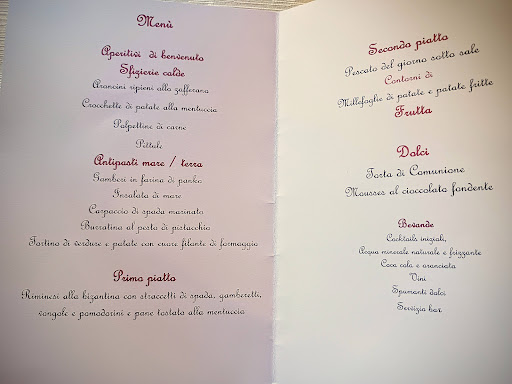 Menù
Aperitivi di benvenuto
Sfizierie calde
Arancini ripieni allo zafferano
Crocchette di patate alla mentuccia
Polpettine di carne
Pittule
Antipasti mare / terra
Gamberi in farina di panko
Insalata di mare
Carpaccio di spada marinato
Burratina al pesto di pistacchio
Tortino di verdure e patate con cuore filante di formaggio
Primo piatto
Riminesi alla bizantina con straccetti di spada, gamberetti,
vongole e pomodorini e pane tostato alla mentuccia
Secondo piatto
Pescato del giorno sotto sale
Contorni di
Millefoglie di patate e patate fritte
Frutta
Dolci
Torta di Comunione
Mousses al cioccolato fondente
Bevande
Cocktails iniziali,
Acqua minerale naturale e frizzante
Coca cola e aranciata
Vini
Spumanti dolci
Servizio bar